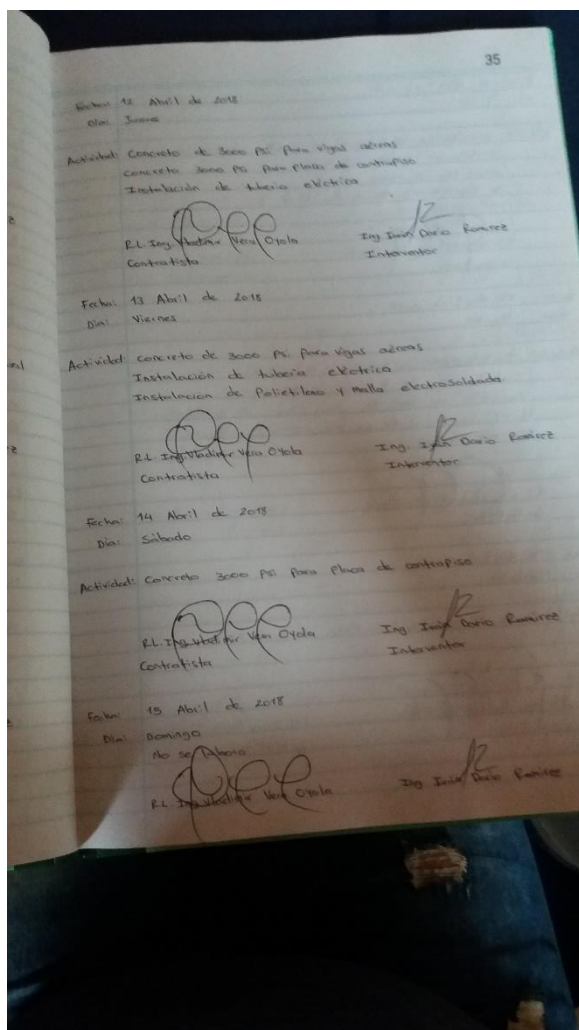 35
Fecha: 12 Abril de 2018
Día: Jueves
Actividad: Concreto de 3000 PSi para vigas aéreas
concreto 3000 PSi para placa de contrapiso
Instalación de tuberia eléctrica
R.L. Ing. Vladimir Vera Oyola Ing Iván Dario Ramirez
Contratista Interventor
Fecha: 13 Abril de 2018
Día: Viernes
Actividad: concreto de 3000 PSi para vigas aéreas
Instalación de tuberia eléctrica
Instalacion de Polietileno y malla electrosoldada
R.L. Ing Vladimir Vera Oyola Ing. Iván Dario Ramirez
Contratista Interventor
Fecha: 14 Abril de 2018
Día: Sábado
Actividad: Concreto 3000 PSi para Placa de contrapiso
R.L. Ing Vladimir Vera Oyola Ing Iván Dario Ramirez
Contratista Interventor
Fecha: 15 Abril de 2018
Día: Domingo
No se labora
R.L Ing Vladimir Vera Oyola Ing Iván Dario Ramirez